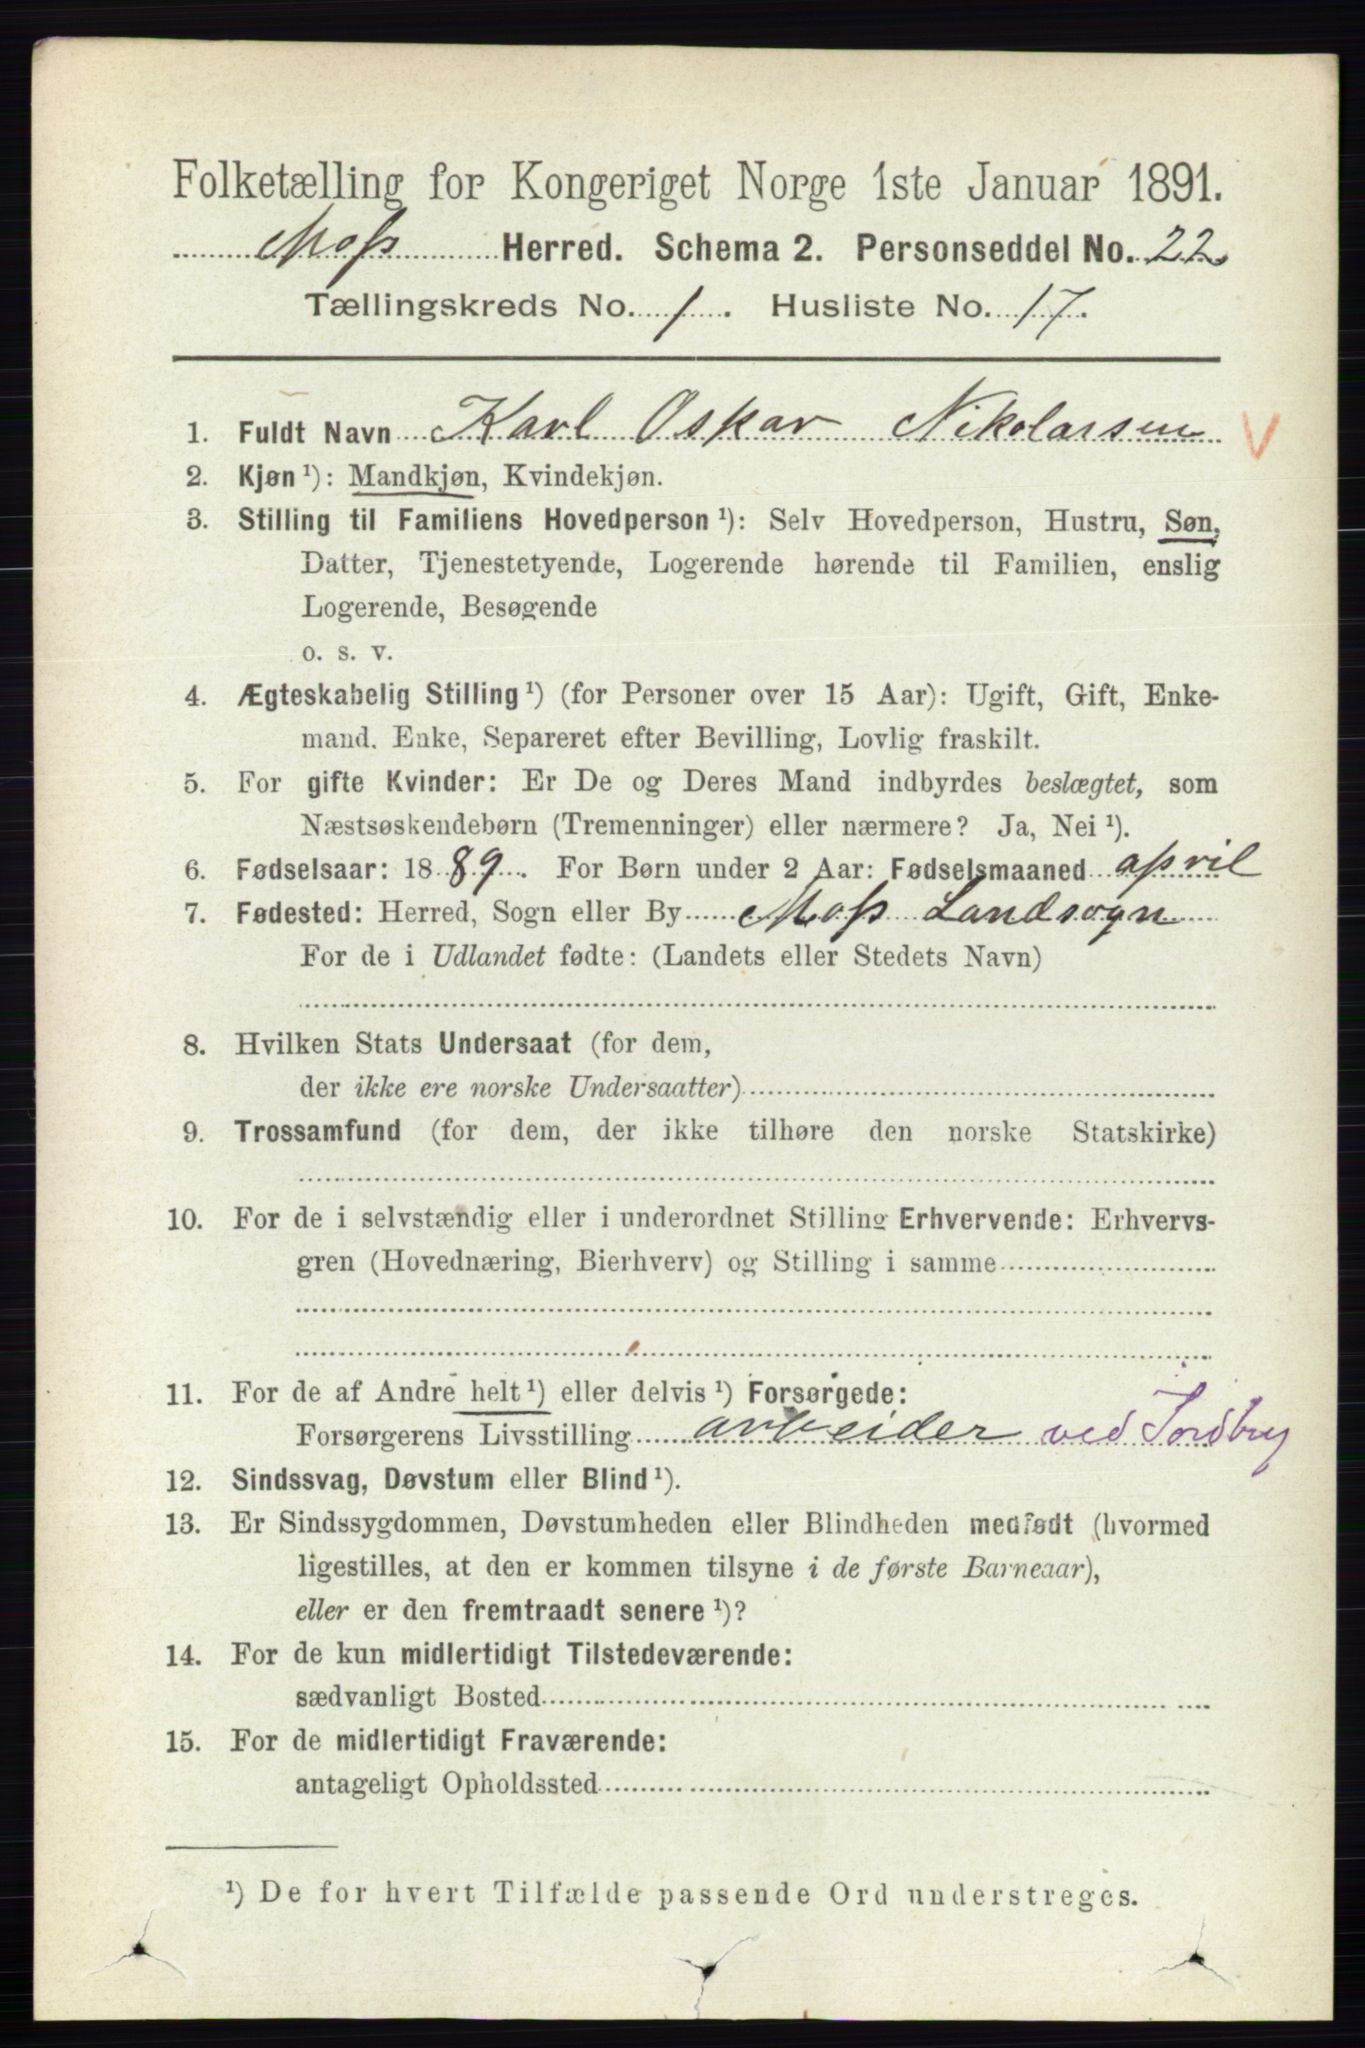 Folketælling for Kongeriget Norge 1ste Januar 1891.
Moss Herred. Schema 2. Personseddel No. 22
Tællingskreds No. 1. Husliste No. 17.
1. Fuldt Navn Karl Oskar Nikolaisen V
2. Kjøn ¹): Mandkjøn, Kvindekjøn.
3. Stilling til Familiens Hovedperson ¹): Selv Hovedperson, Hustru, Søn,
Datter, Tjenestetyende, Logerende hørende til Familien, enslig
Logerende, Besøgende
o. s. v.
4. Ægteskabelig Stilling ¹) (for Personer over 15 Aar): Ugift, Gift, Enke-
mand. Enke, Separeret efter Bevilling, Lovlig fraskilt.
5. For gifte Kvinder: Er De og Deres Mand indbyrdes beslægtet, som
Næstsøskendebørn (Tremenninger) eller nærmere? Ja, Nei ¹).
6. Fødselsaar: 1889. For Børn under 2 Aar: Fødselsmaaned april
7. Fødested: Herred, Sogn eller By Moss Landsogn
For de i Udlandet fødte: (Landets eller Stedets Navn)
8. Hvilken Stats Undersaat (for dem,
der ikke ere norske Undersaatter)
9. Trossamfund (for dem, der ikke tilhøre den norske Statskirke)
10. For de i selvstændig eller i underordnet Stilling Erhvervende: Erhvervs-
gren (Hovednæring, Bierhverv) og Stilling i samme
11. For de af Andre helt ¹) eller delvis ¹) Forsørgede:
Forsørgerens Livsstilling arbeider ved Jordbrug
12. Sindssvag, Døvstum eller Blind ¹).
13. Er Sindssygdommen, Døvstumheden eller Blindheden medfødt (hvormed
ligestilles, at den er kommen tilsyne i de første Barneaar),
eller er den fremtraadt senere ¹)?
14. For de kun midlertidigt Tilstedeværende:
sædvanligt Bosted
15. For de midlertidigt Fraværende:
antageligt Opholdssted
¹) De for hvert Tilfælde passende Ord understreges.